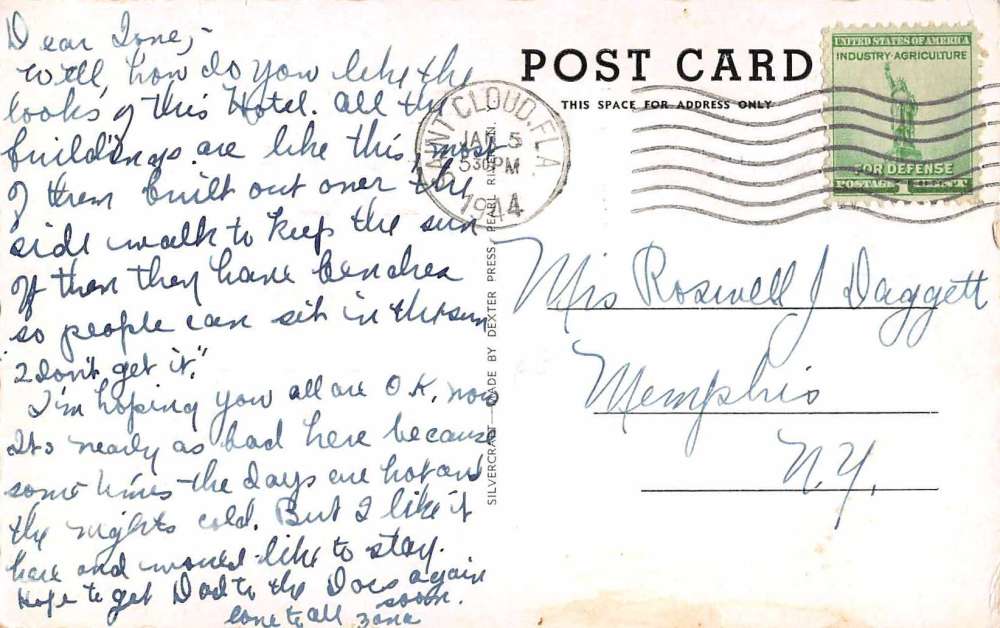 Dear Ione,-
Well, how do you like the
looks of this Hotel. All the
buildings are like this, most
of them built out over the
side walk to keep the sun
off then they have benches
so people can sit in the sun
"I don't get it."
I'm hoping you all are O.K. now
Its nearly as bad here because
some times the days are hot and
the nights cold. But I like it
here and would like to stay.
Hope to get Dad to the Docs again
soon.
Love to all Zona
SILVERCRAFT MADE BY DEXTER PRESS, PEARL RIVER, N.
POST CARD
THIS SPACE FOR ADDRESS ONLY
SAINT CLOUD, FLA.
JAN 5
530 PM
1944
UNITED STATES OF AMERICA
INDUSTRY·AGRICULTURE
FOR DEFENSE
POSTAGE 1 CENT
Mrs Roswell J Daggett
Memphis
N.Y.